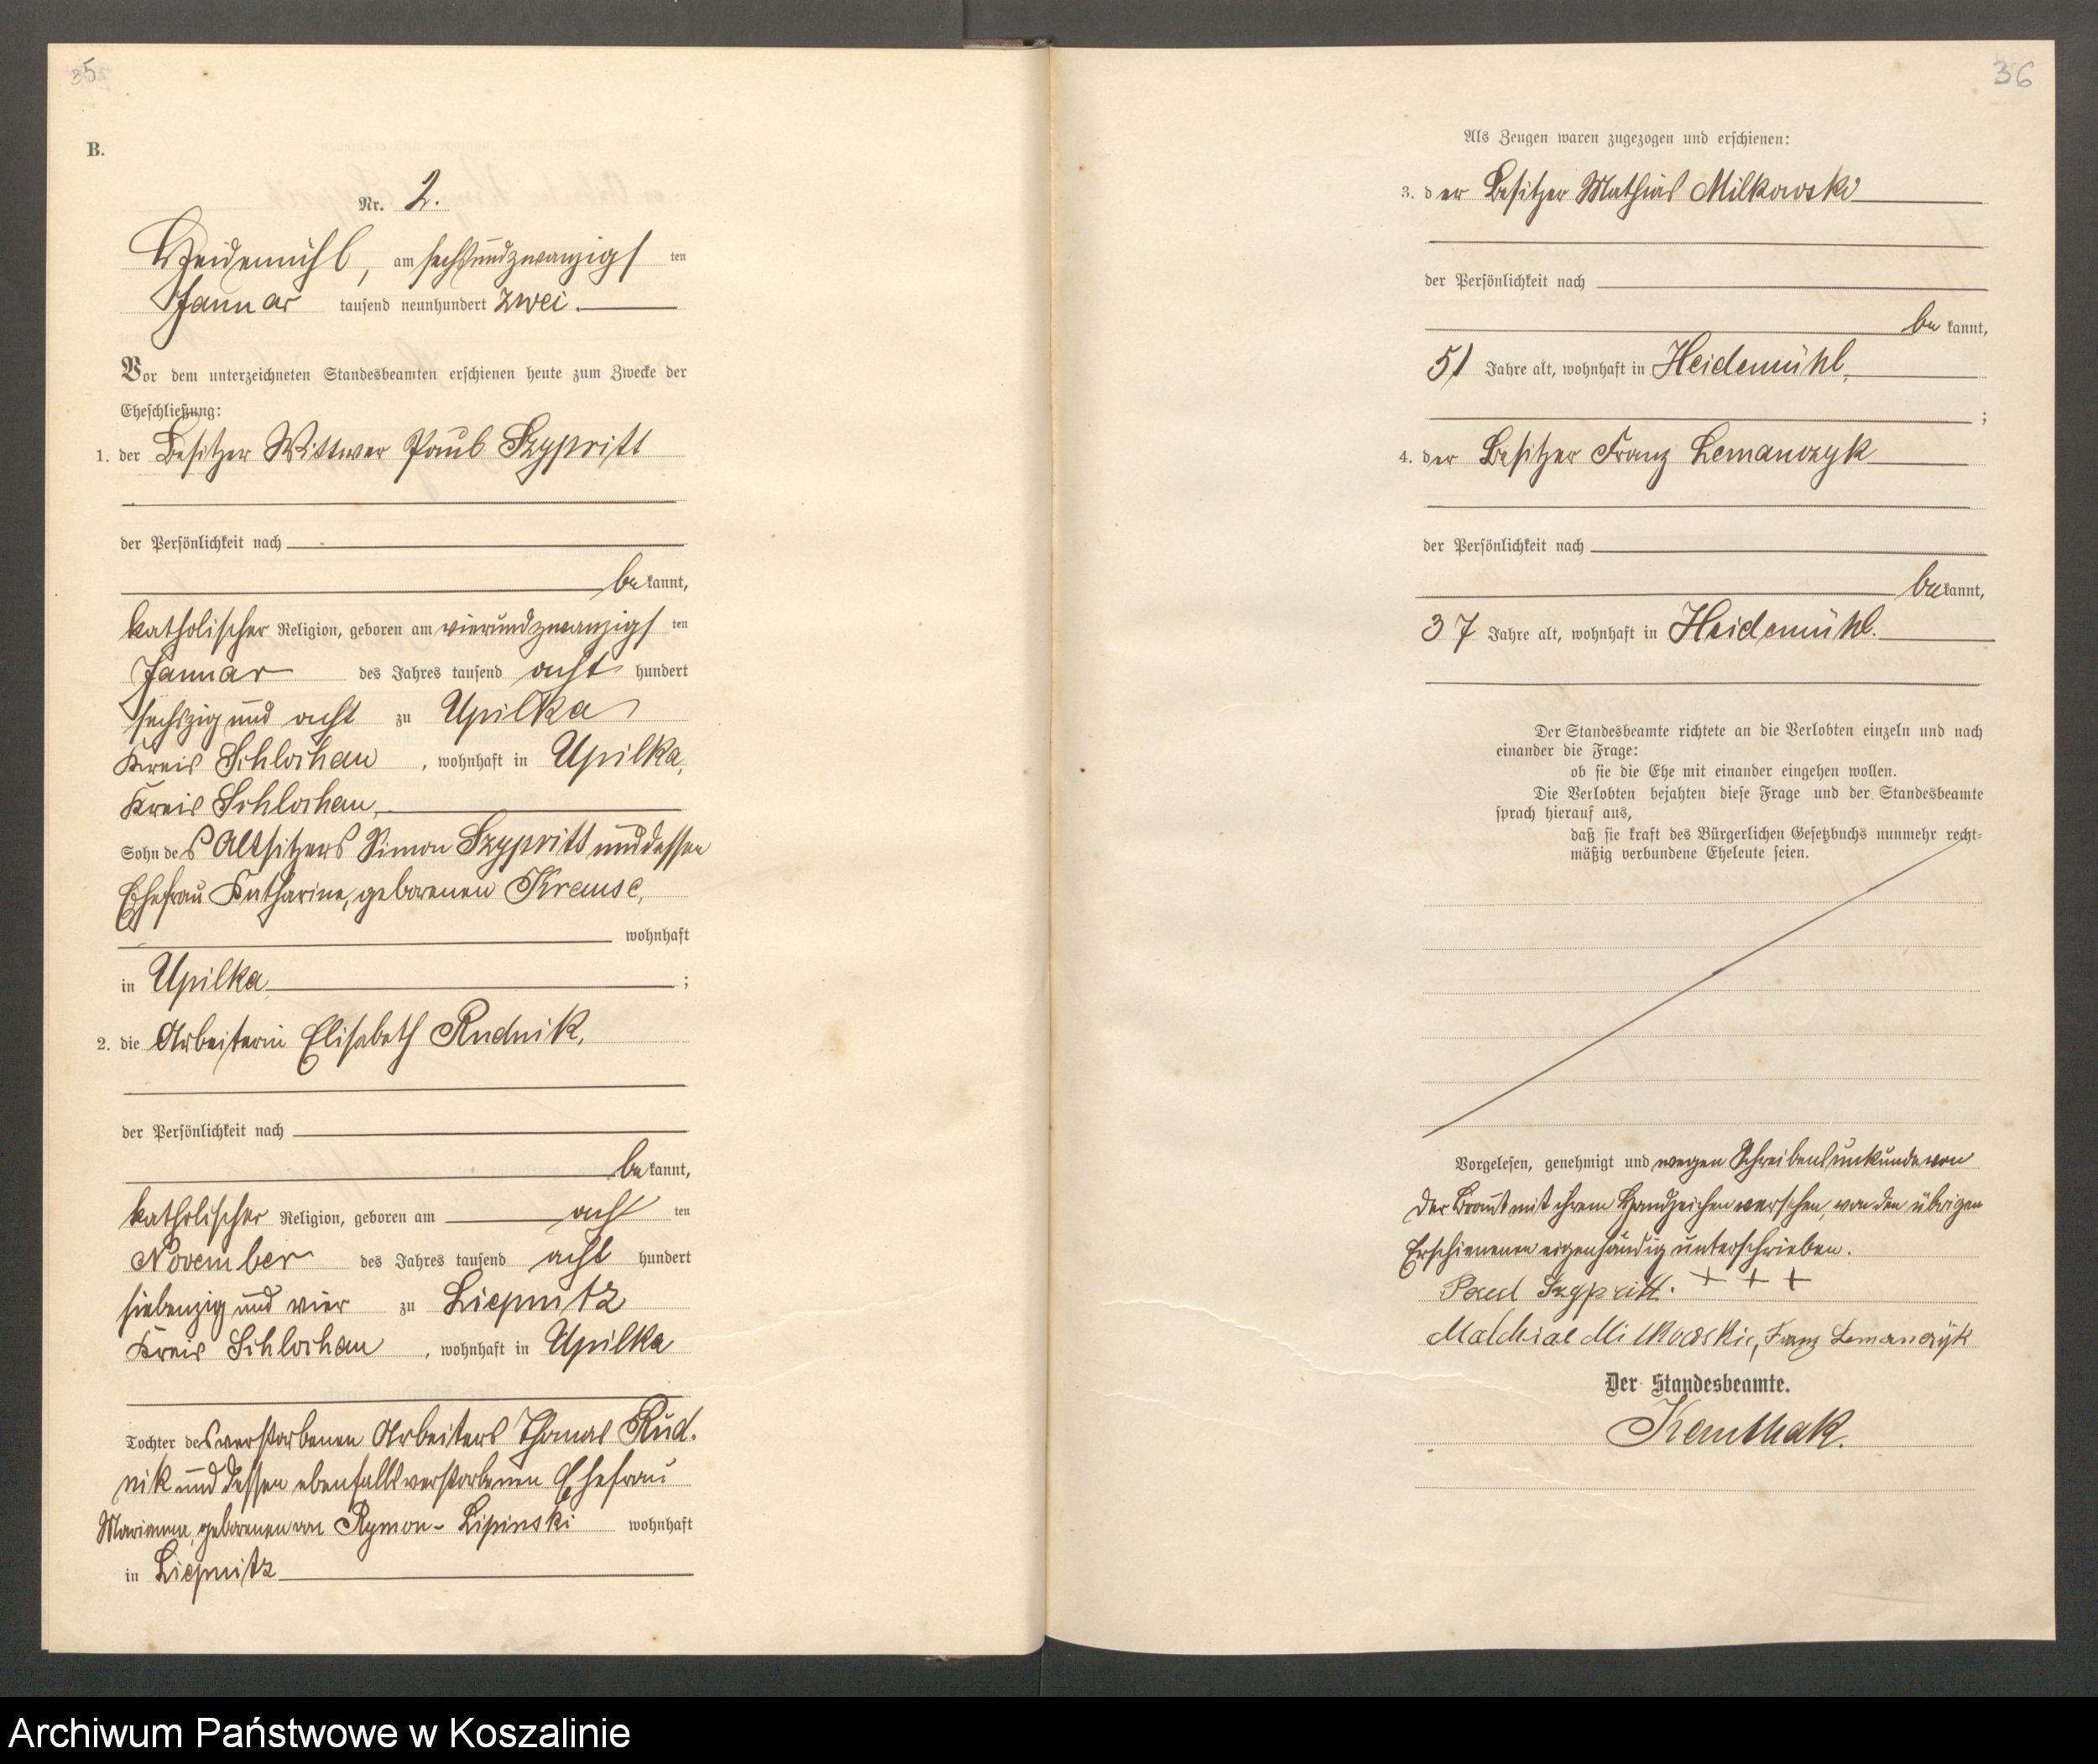 35
B.
Nr. 2.
Heidemühl, am sechsundzwanzigs ten
Januar tausend neunhundert zwei.
Vor dem unterzeichneten Standesbeamten erschienen heute zum Zwecke der
Eheschließung:
1. der Besitzer Wittwer Paul Szypritt
der Persönlichkeit nach
be kannt,
katholischer Religion, geboren am vierundzwanzigs ten
Januar des Jahres tausend acht hundert
sechszig und acht zu Upilka
Kreis Schlochau, wohnhaft in Upilka,
Kreis Schlochau,
Sohn des Altsitzers Simon Szypritt und dessen
Ehefrau Katharine, geborenen Krause,
wohnhaft
in Upilka;
2. die Arbeiterin Elisabeth Rudnik,
der Persönlichkeit nach
be kannt,
katholischer Religion, geboren am acht ten
November des Jahres tausend acht hundert
siebenzig und vier zu Liepnitz
Kreis Schlochau, wohnhaft in Upilka
Tochter des verstorbenen Arbeiters Thomas Rud-
nik und dessen ebenfalls verstorbenen Ehefrau
Marianna, geborenen von Rymon-Lipinski wohnhaft
in Liepnitz
36
Als Zeugen waren zugezogen und erschienen:
3. der Besitzer Mathias Milkowski
der Persönlichkeit nach
be kannt,
51 Jahre alt, wohnhaft in Heidemühl,
;
4. der Besitzer Franz Lemanczyk
der Persönlichkeit nach
be kannt,
37 Jahre alt, wohnhaft in Heidemühl.
Der Standesbeamte richtete an die Verlobten einzeln und nach
einander die Frage:
ob sie die Ehe mit einander eingehen wollen.
Die Verlobten bejahten diese Frage und der Standesbeamte
sprach hierauf aus,
daß sie kraft des Bürgerlichen Gesetzbuchs nunmehr recht-
mäßig verbundene Eheleute seien.
Vorgelesen, genehmigt und wegen Schreibensunkunde von
der Braut mit ihrem Handzeichen versehen, von den übrigen
Erschienenen eigenhändig unterschrieben.
Paul Szypritt. + + +
Mathias Milkowski, Franz Lemanczyk
Der Standesbeamte.
Archiwum Państwowe w Koszalinie